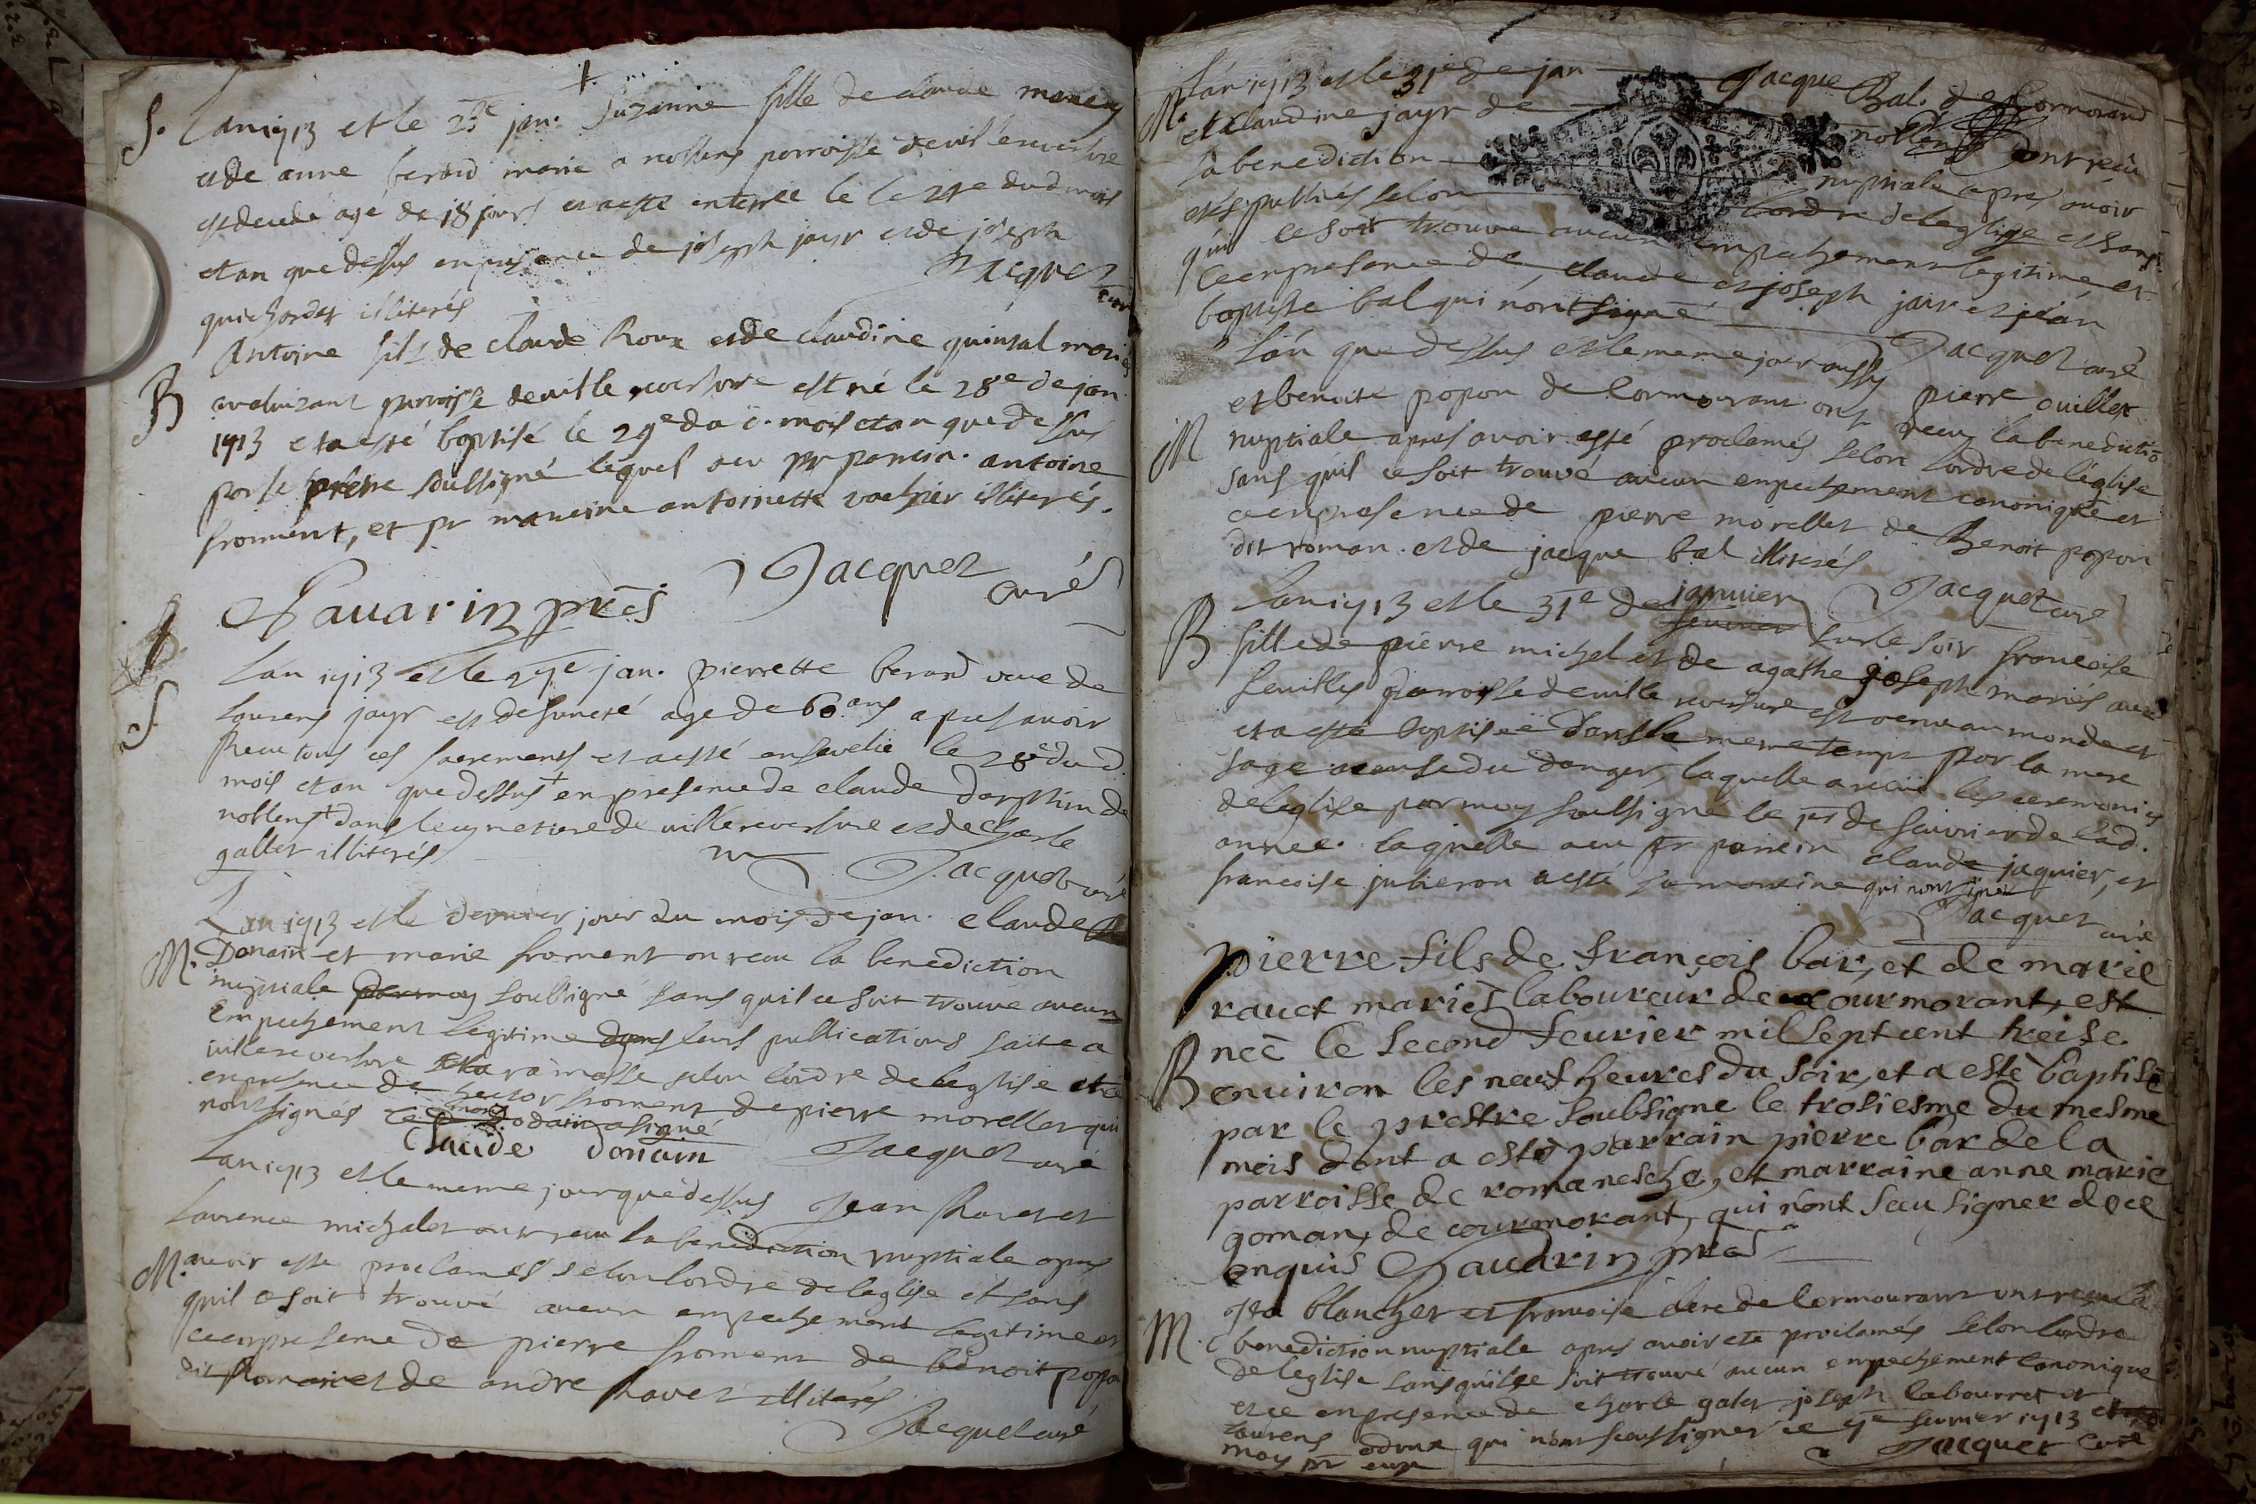 S. Lan 1713 et le 23e jan. Suzanne fille de claude
et de anne berard marie a nollens parroisse de villereversure
est decede agé de 18 jours et a esté enterrée le dud mois
et an que dessus en presence de joseph jayr et de joseph
guichardet illiterés Jacquet curé
B Antoine fils de Claude Roux et de claudine quinsal mariés
parroisse de ville reversure est né le 28e de jan
1713 et a esté baptisé le 29e du d. mois et an que dessus
par le prêtre soussigné lequel a eu pr parein antoine
froment, et pr mareine antoinette vachier illiterés.
Jacquet curé
Savarin prês
S Lan 1713 et le 27e jan. pierrette berard veve de
Laurens jayr est defuncté agé de 60 ans apres avoir
Receu tous ces sacrements et a esté ensevelie le 28e du d.
mois et an que dessus + en presence de claude dauphin de
nollens + dans le cymetiere de villereversure et de charle
gallet illiterés Jacquet curé
Lan 1713 et le dernier jour du mois de jan. claude
M. Donain et marie froment on receu la benediction
nuptiale par moy soubsigné sans quil ce soit trouve aucun
Empechement legitime dans leurs publications faite a
villereversure et a ramasse selon lordre de leglise et ce
en presence de hector froment de pierre morellet qui
nont signés
Claude donain Jacquet curé
Lan 1713 et le meme jour que dessus Jean Ravet et
Laurence michalet ont receu la benediction nuptiale apres
M. avoir esté proclamés selon lordre de leglise et sans
quil ce soit trouvé aucun empechement legitime et
ce en presence de pierre froment de benoit popon
dit Roman et de andre Ravet illiterés
Jacquet curé
Lan 1713 et le 31e de jan Jacque Bal. de Cormorand
M. et Claudine jayr de nollens ont receu
la benediction nuptiale apres avoir
estés publiés selon lordre de leglise et sans
quil ce soit trouve aucun empechement legitime et
ce en presence de claude et joseph jair et jean
baptiste bal qui n'ont signé Jacquet curé
Lan que dessus et le meme jour aussy pierre ouillet
M et benoite popon de Cormourant ont receu la benedictio
nuptiale apres avoir esté proclamés selon lordre de léglise
sans quil ce soit trouvé aucun empechement canonique et
ce en presence de pierre morellet de Benoit popon
dit roman. et de jacque bal illiterés
Jacquet curé
B Lan 1713 et le 31e de janvier sur le soir francoise
fille de pierre michel et de agathe joseph mariés
parroisse de ville reversure est venue au monde et
et a esté baptisée dans le meme temps par la mere
sage a cause du danger, laquelle a receu les ceremonies
de leglise par moy soussigné le pr de favrier de lad.
année. laquelle a eu pr parein claude jaquier, et
francoise juheron a esté sa mareine qui nont signés
Jacquet curé
Pierre fils de françois bar, et de marie
ravet mariés laboureur de courmorant, est
neé le second feurier mil sept cent treise.
B enuiron les neuf heures du soir, et a esté baptisé
par le prestre soubsigne le trosiesme du mesme
mois dont a esté parrain pierre bar de la
parroisse de romanesche, et marraine anne marie
goman, de courmorant, qui n'ont sceu signer de ce
enquis Savarin prês
M. blanchet et francoise de Cormourant ont receu la
benediction nuptiale apres avoir eté proclamés selon lordre
de leglise sans quil se soit trouvé aucun empechement canonique
et ce en presence de charle galet joseph labourret et
Laurens odrux qui n'ont sceu signer ce 7e fevrier 1713
moy pr eux Jacquet curé